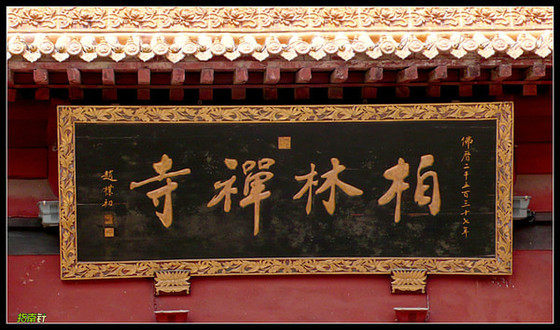 佛曆二千五百三十七年
柏林禪寺
趙樸初
指南針